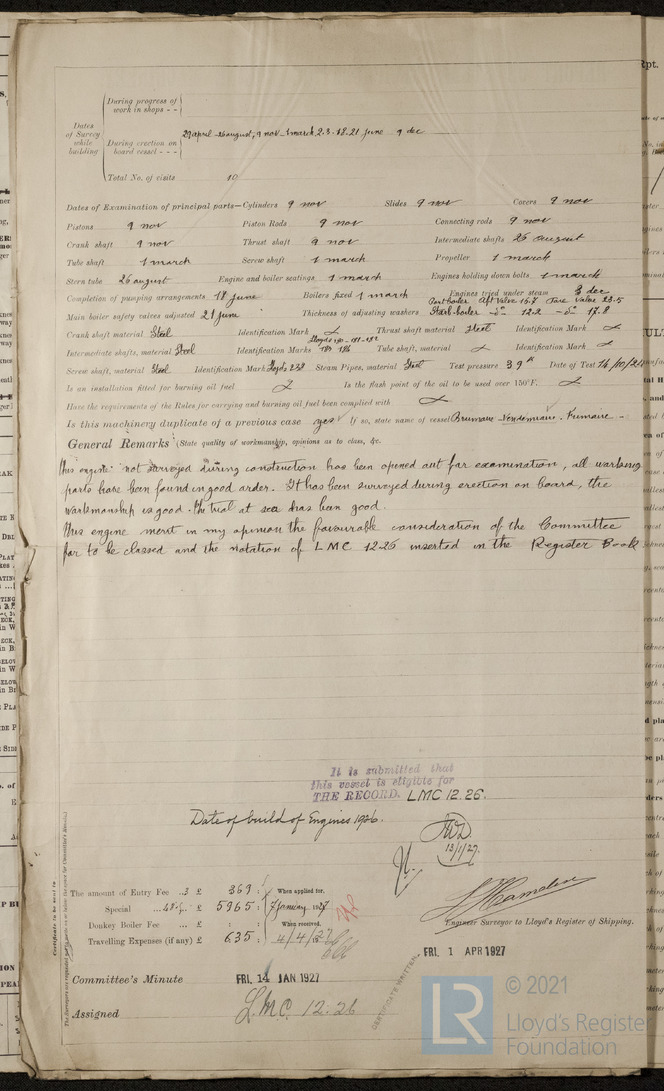 During progress of
work in shops - -
Dates
of Survey
while
building
During erection on
board vessel - - -
29 april - 26 august, 9 nov - 1 march 2.3. 18.21 june - 9 dec
Total No. of visits 10
Dates of Examination of principal parts—Cylinders 9 nov Slides 9 nov Covers 9 nov
Pistons 9 nov Piston Rods 9 nov Connecting rods 9 nov
Crank shaft 9 nov Thrust shaft 9 nov Intermediate shafts 26 august
Tube shaft 1 march Screw shaft 1 march Propeller 1 march
Stern tube 26 august Engine and boiler seatings 1 march Engines holding down bolts 1 march
Completion of pumping arrangements 18 june Boilers fixed 1 march Engines tried under steam 3 dec
Main boiler safety valves adjusted 21 june Thickness of adjusting washers Port boiler aft Valve 15.7 Fore Valve 23.5
Starb-boiler -do- 12.2 -do- 17.8
Crank shaft material Steel Identification Mark Thrust shaft material Steel Identification Mark
Intermediate shafts, material Steel Identification Marks Tube shaft, material Identification Mark
Screw shaft, material Steel Identification Mark Lloyds 238 Steam Pipes, material Steel Test pressure 39 k Date of Test 14/10/24
Is an installation fitted for burning oil fuel Is the flash point of the oil to be used over 150°F.
Have the requirements of the Rules for carrying and burning oil fuel been complied with
Is this machinery duplicate of a previous case yes If so, state name of vessel Brumaire - Vendemiaire - Frimaire -
General Remarks (State quality of workmanship, opinions as to class, &c.
This engine not surveyed during construction has been opened out for examination, all working
parts have been found in good order. It has been surveyed during erection on board, the
workmanship is good. the trial at sea has been good.
This engine merit in my opinion the favourable consideration of the Committee
for to be classed and the notation of LMC 12-26 inserted in the Register Book
It is submitted that
this vessel is eligible for
THE RECORD. LMC 12.26.
Date of build of Engines 1926.
13/1/27.
The amount of Entry Fee .. £ 363 : When applied for,
Special ... £ 5965 : 7 January 1927
Donkey Boiler Fee ... £ : When received,
Travelling Expenses (if any) £ 635 : 4/4/27
Engineer Surveyor to Lloyd's Register of Shipping.
FRI. 1 APR 1927
Committee's Minute FRI. 14 JAN 1927
Assigned L.M.C. 12:26
CERTIFICATE WRITTEN
© 2021
LR
Lloyd's Register
Foundation